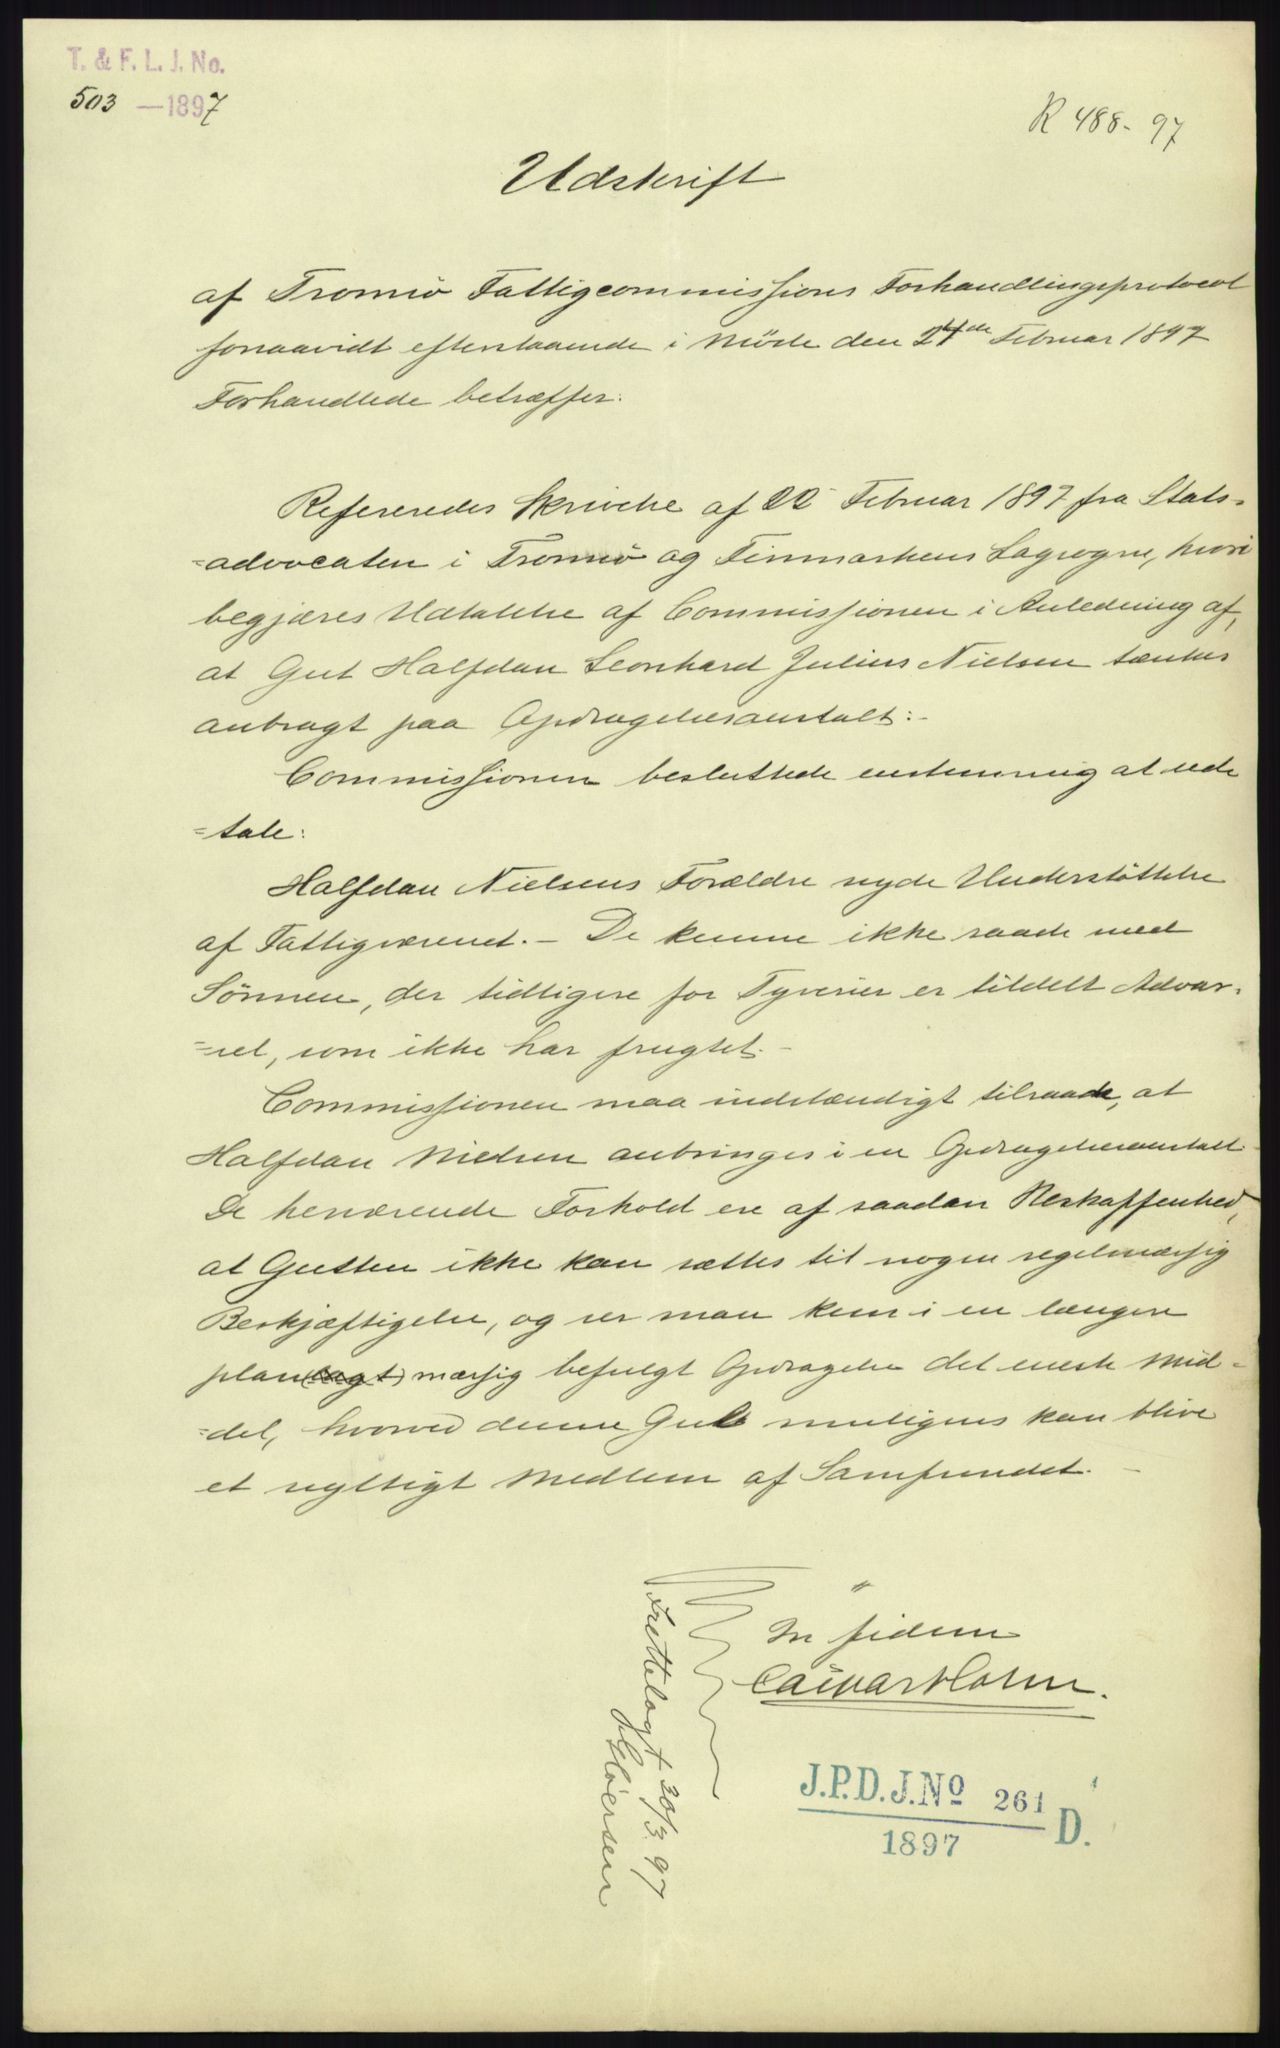 T. & F. L. J. No.
503 — 1897
R 488 - 97
Udskrift
af Tromsö Fattigcommissions Forhandlingsprotocol
forsaavidt efterstaaende i Möde den 24de Februar 1897
Forhandlede betræffer:
Refereredes Skrivelse af 22 Februar 1897 fra Stats-
=advocaten i Tromsö og Finmarkens Lagsogn, hvori
begjæres Udtalelse af Commissionen i Anledning af,
at Gut Halfdan Leonhard Julius Nielsen tænkes
anbragt paa Opdragelsesanstalt:-
Commissionen besluttede enstemmig at ud-
=tale:
Halfdan Nielsens Forældre nyde Understöttelse
af Fattigvæsenet. - De kunne ikke raade med
Sönnen, der tidligere for Tyverier er tildelt Advar-
=sel, som ikke har frugtet. -
Commissionen maa indstændigt tilraade, at
Halfdan Nielsen anbringes i en Opdragelsesanstalt.
De herværende Forhold ere af saadan Beskaffenhed,
at Gutten ikke kan sættes til nogen regelmæssig
Beskjæftigelse, og ser man kun i en længere
plan(lagt)mæssig befulgt Opdragelse det eneste Mid-
=del, hvorved denne Gut muligens kan blive
et nyttigt Medlem af Samfundet. -
In fidem
Caspar Holm.
Fretttelagt 20/3 97
J.P.D. J. No 261 D.
1897